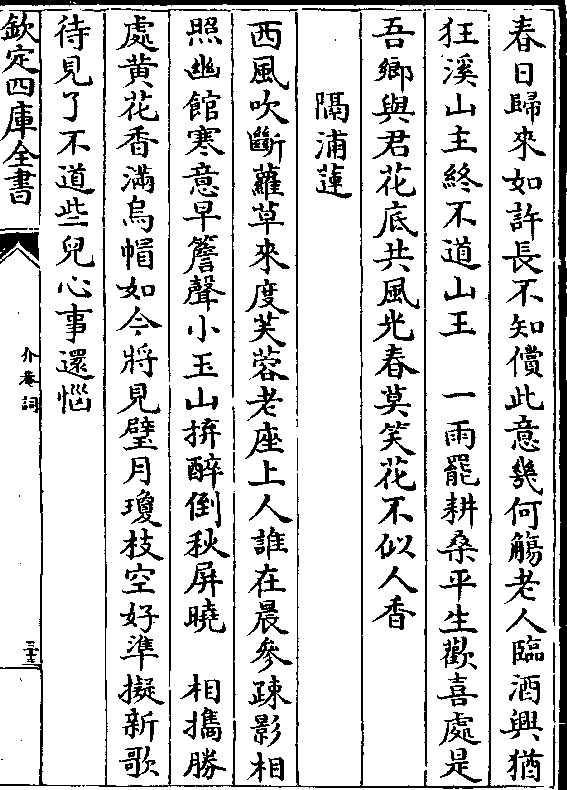 春日歸來如許長不知償此意幾何觴老人臨酒興猶
狂溪山主終不道山王　一雨罷耕桑平生歡喜處是
吾鄉與君花底共風光春莫笑花不似人香
隔浦蓮
西風吹斷蘿草來度芙蓉老座上人誰在晨參疎影相
照幽館寒意早簷聲小玉山拚醉倒秋屏曉　相攜勝
處黃花香滿烏帽如今將見璧月瓊枝空好準擬新歌
待見了不道些兒心事還惱
欽定四庫全書
介菴詞